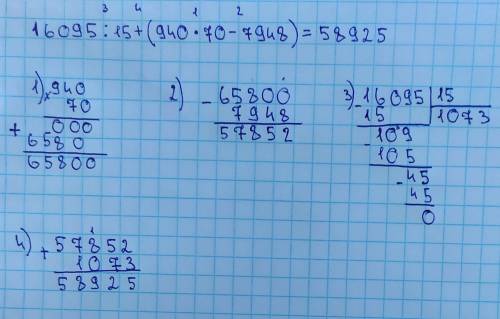 3 4 1 2
16095:15+(940·70-7948)=58925
1) ×940
70
000
+
6580
65800
2) -65800
7948
57852
3) -16095 | 15
15 | 1073
-109
105
-45
45
0
4) + 57852
1073
58925